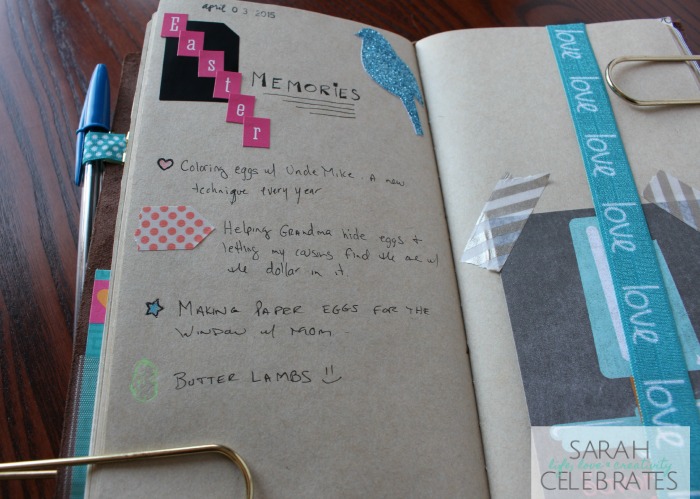 april 03 2015
Easter
MEMORIES
Coloring eggs w/ Uncle Mike. A new
technique every year
Helping Grandma hide eggs &
letting my cousins find the one w/
the dollar in it
MAKING PAPER EGGS FOR THE
WINDOW w/ MOM
BUTTER LAMBS
love love love love love love love
SARAH
life, love & creativity
CELEBRATES